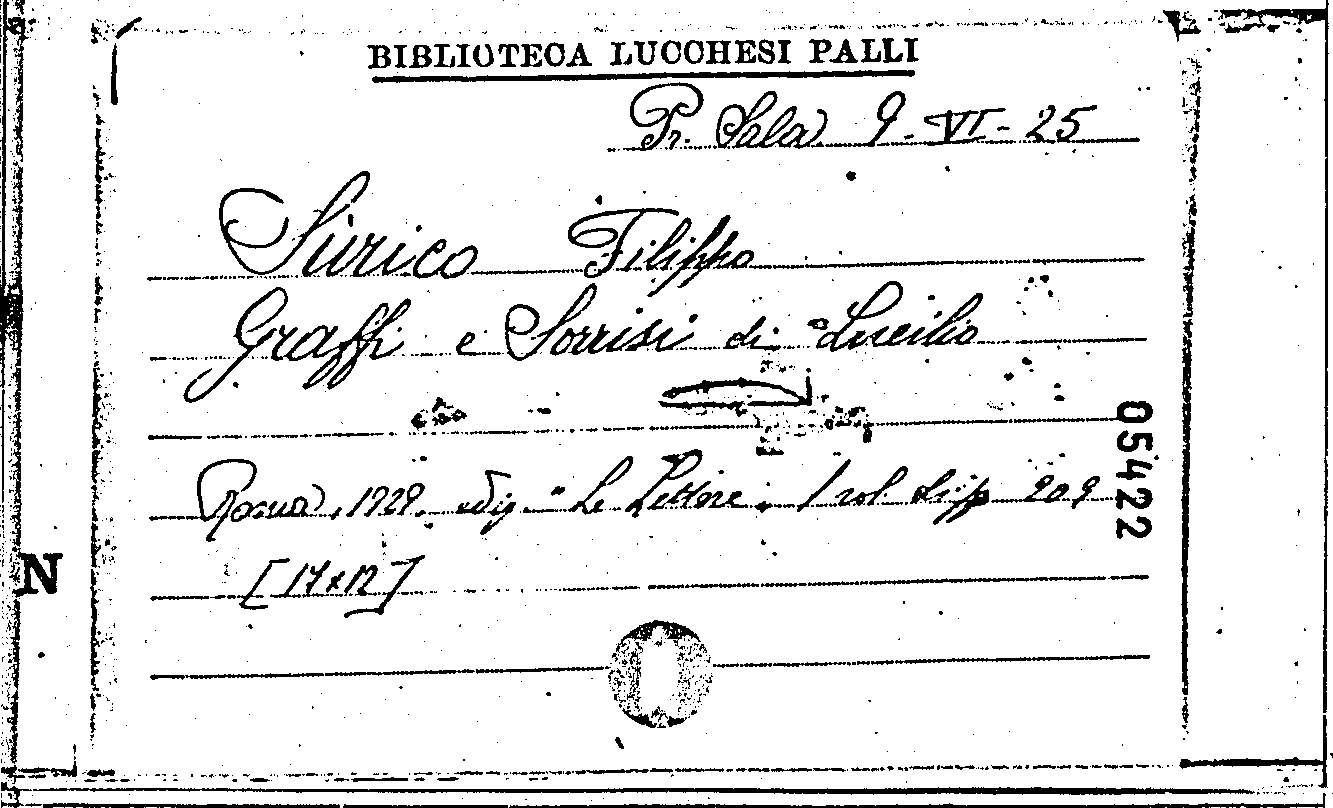 BIBLIOTECA LUCCHESI PALLI
Pr. Sala 9-VI-25
Sùrico Filippo
Graffi e Sorrisi di Lucilio
Roma, 1929. Tip. "Le Lettere". 1 vol. di pp 209
[17x12]
05422
N